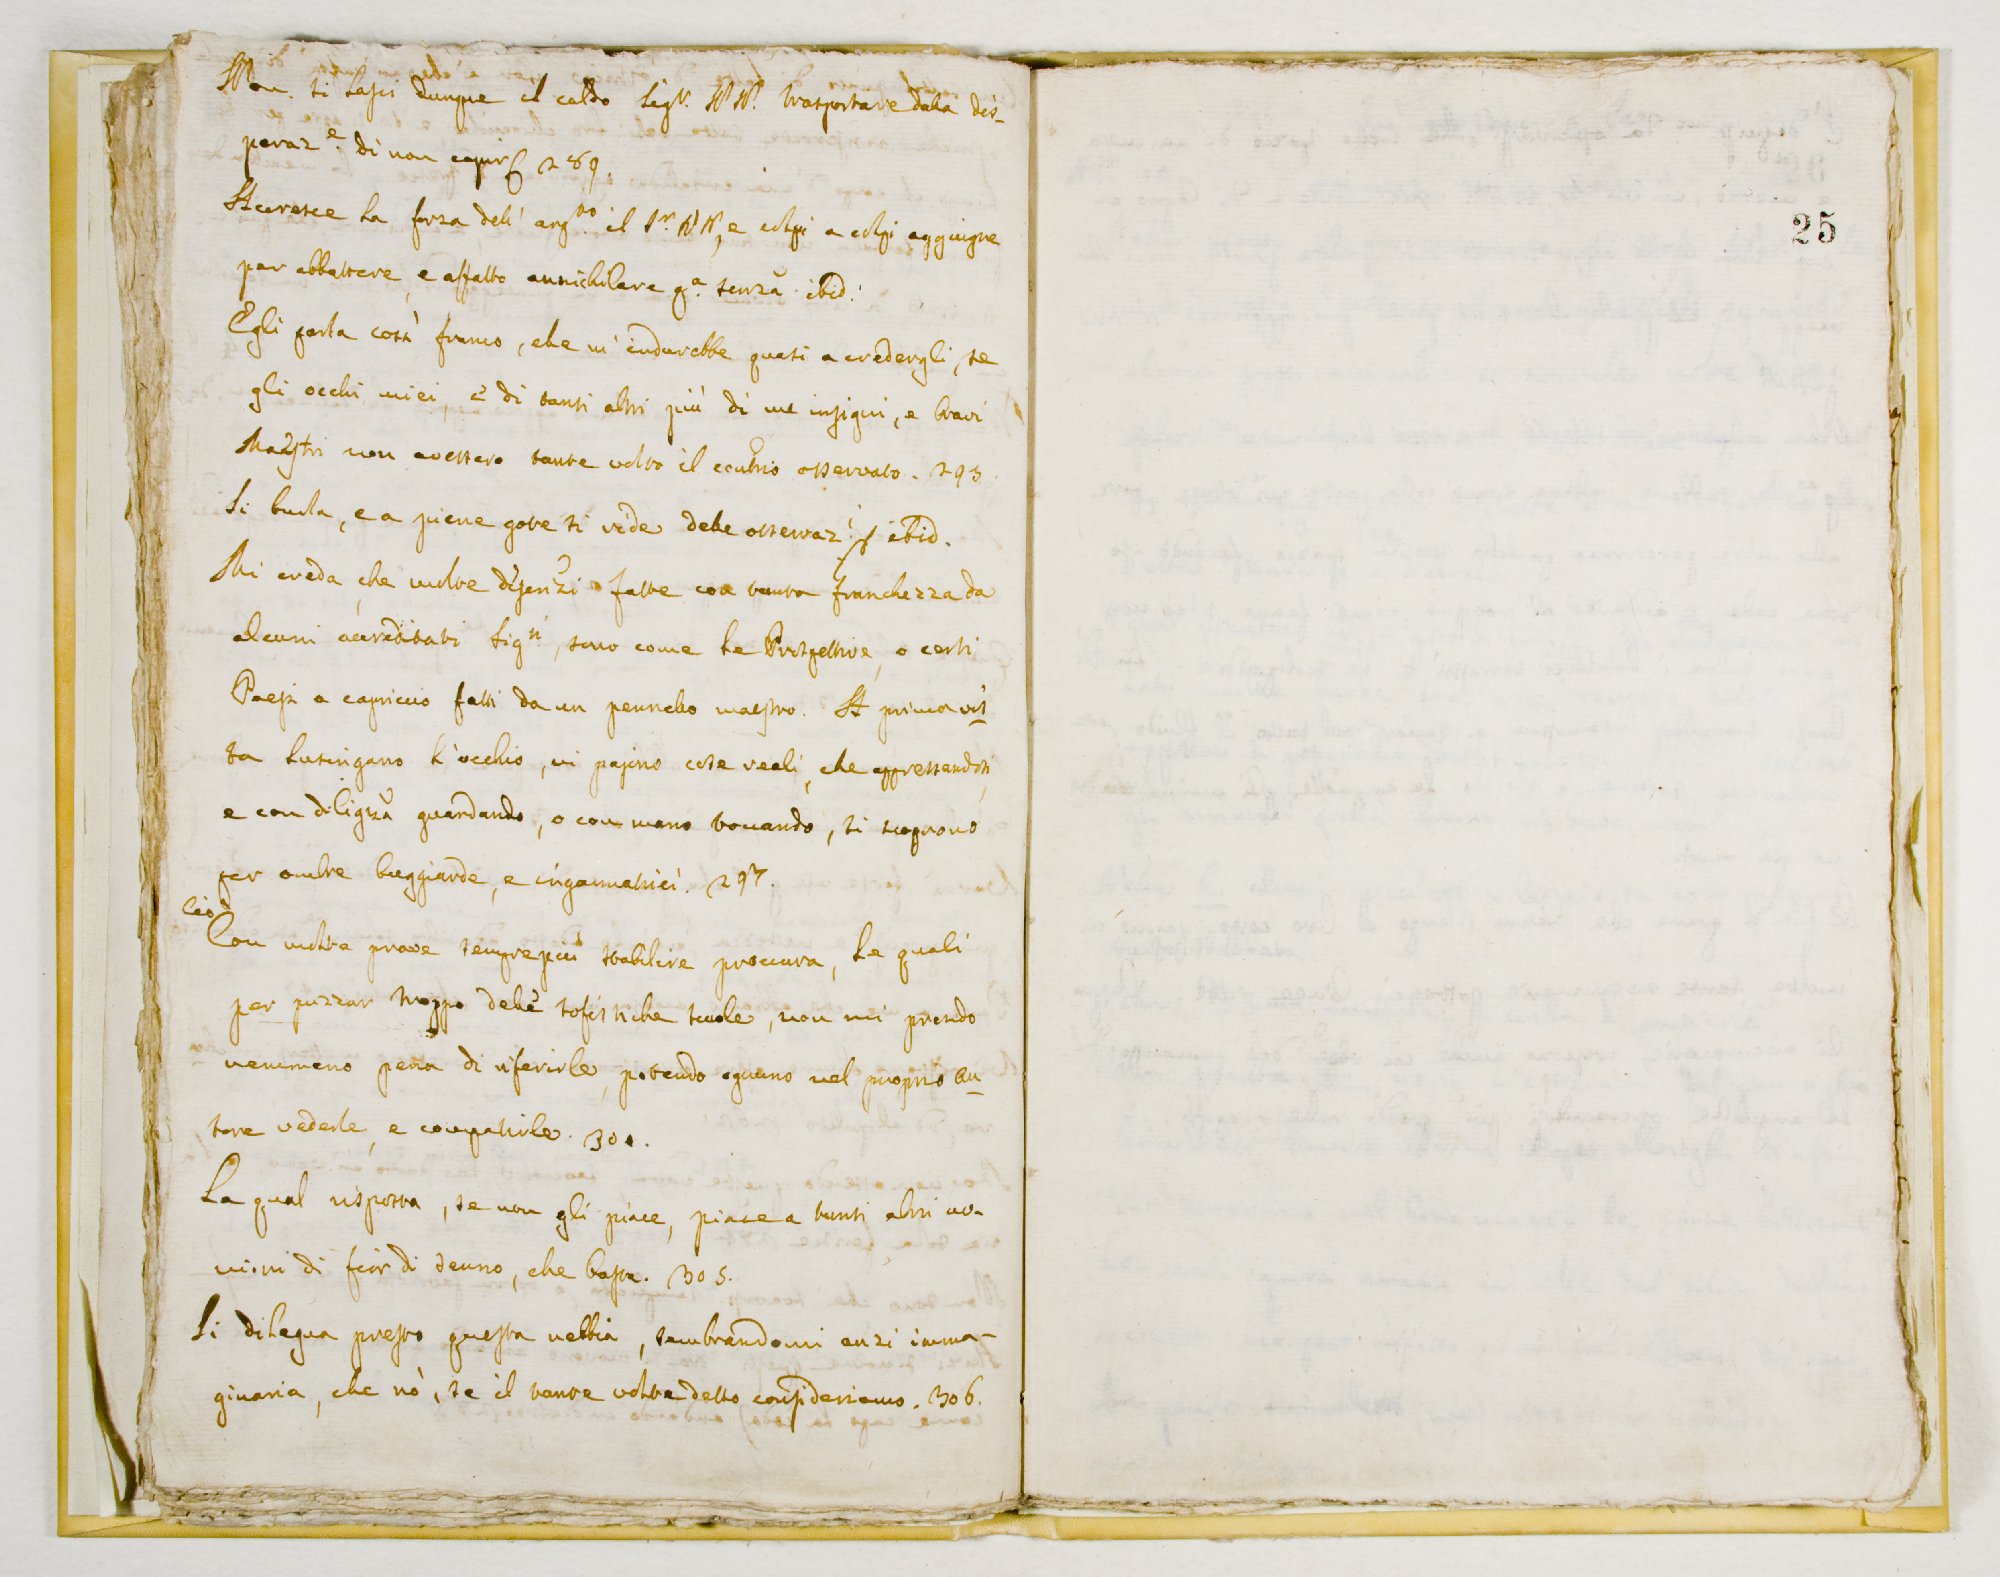 Non si lasci dunque il caldo Sigr. NN. trasportare dalla dis-
peraze. di non capir 289.
Accresce la forza dell' argto. il Sr. NN, e colpi a colpi aggiugne
per abbattere, e affatto annichilare qa. senza ibid.
Egli parla così franco, che m' indurebbe quasi a credergli, se
gli occhi miei, e di tanti altri più di me insigni, e bravi
Maestri non avessero tante volte il contrio osservato. 293.
Si burla, e a piene gote si ride delle osservazi. ibid.
Mi creda, che molte diserzi fatte con tanta franchezza da
alcuni accreditati Sigri, sono come le Prospettive, o certi
Paesi a capriccio fatti da un pennello maestro. A prima vis
ta lusingano l'occhio, vi pajono cose reali, che appressandosi,
e con diligza guardando, o con mano toccando, si scoprono
per ombre buggiarde, e ingannatrici. 297.
Ciò
Con molte prove sempre più stabilire proccura, le quali
per puzzar troppo delle sofistiche scuole, non mi prendo
nemmeno pena di riferirle, potendo ognuno nel proprio Au
tore vederle, e compatirle. 301.
La qual risposta, se non gli piace, piace a tanti altri uo-
mini di fior di senno, che basta. 305.
Si dilegua presto questa nebbia, sembrandomi anzi imma-
ginaria, che nò, se il tante volte detto consideriamo. 306.
25